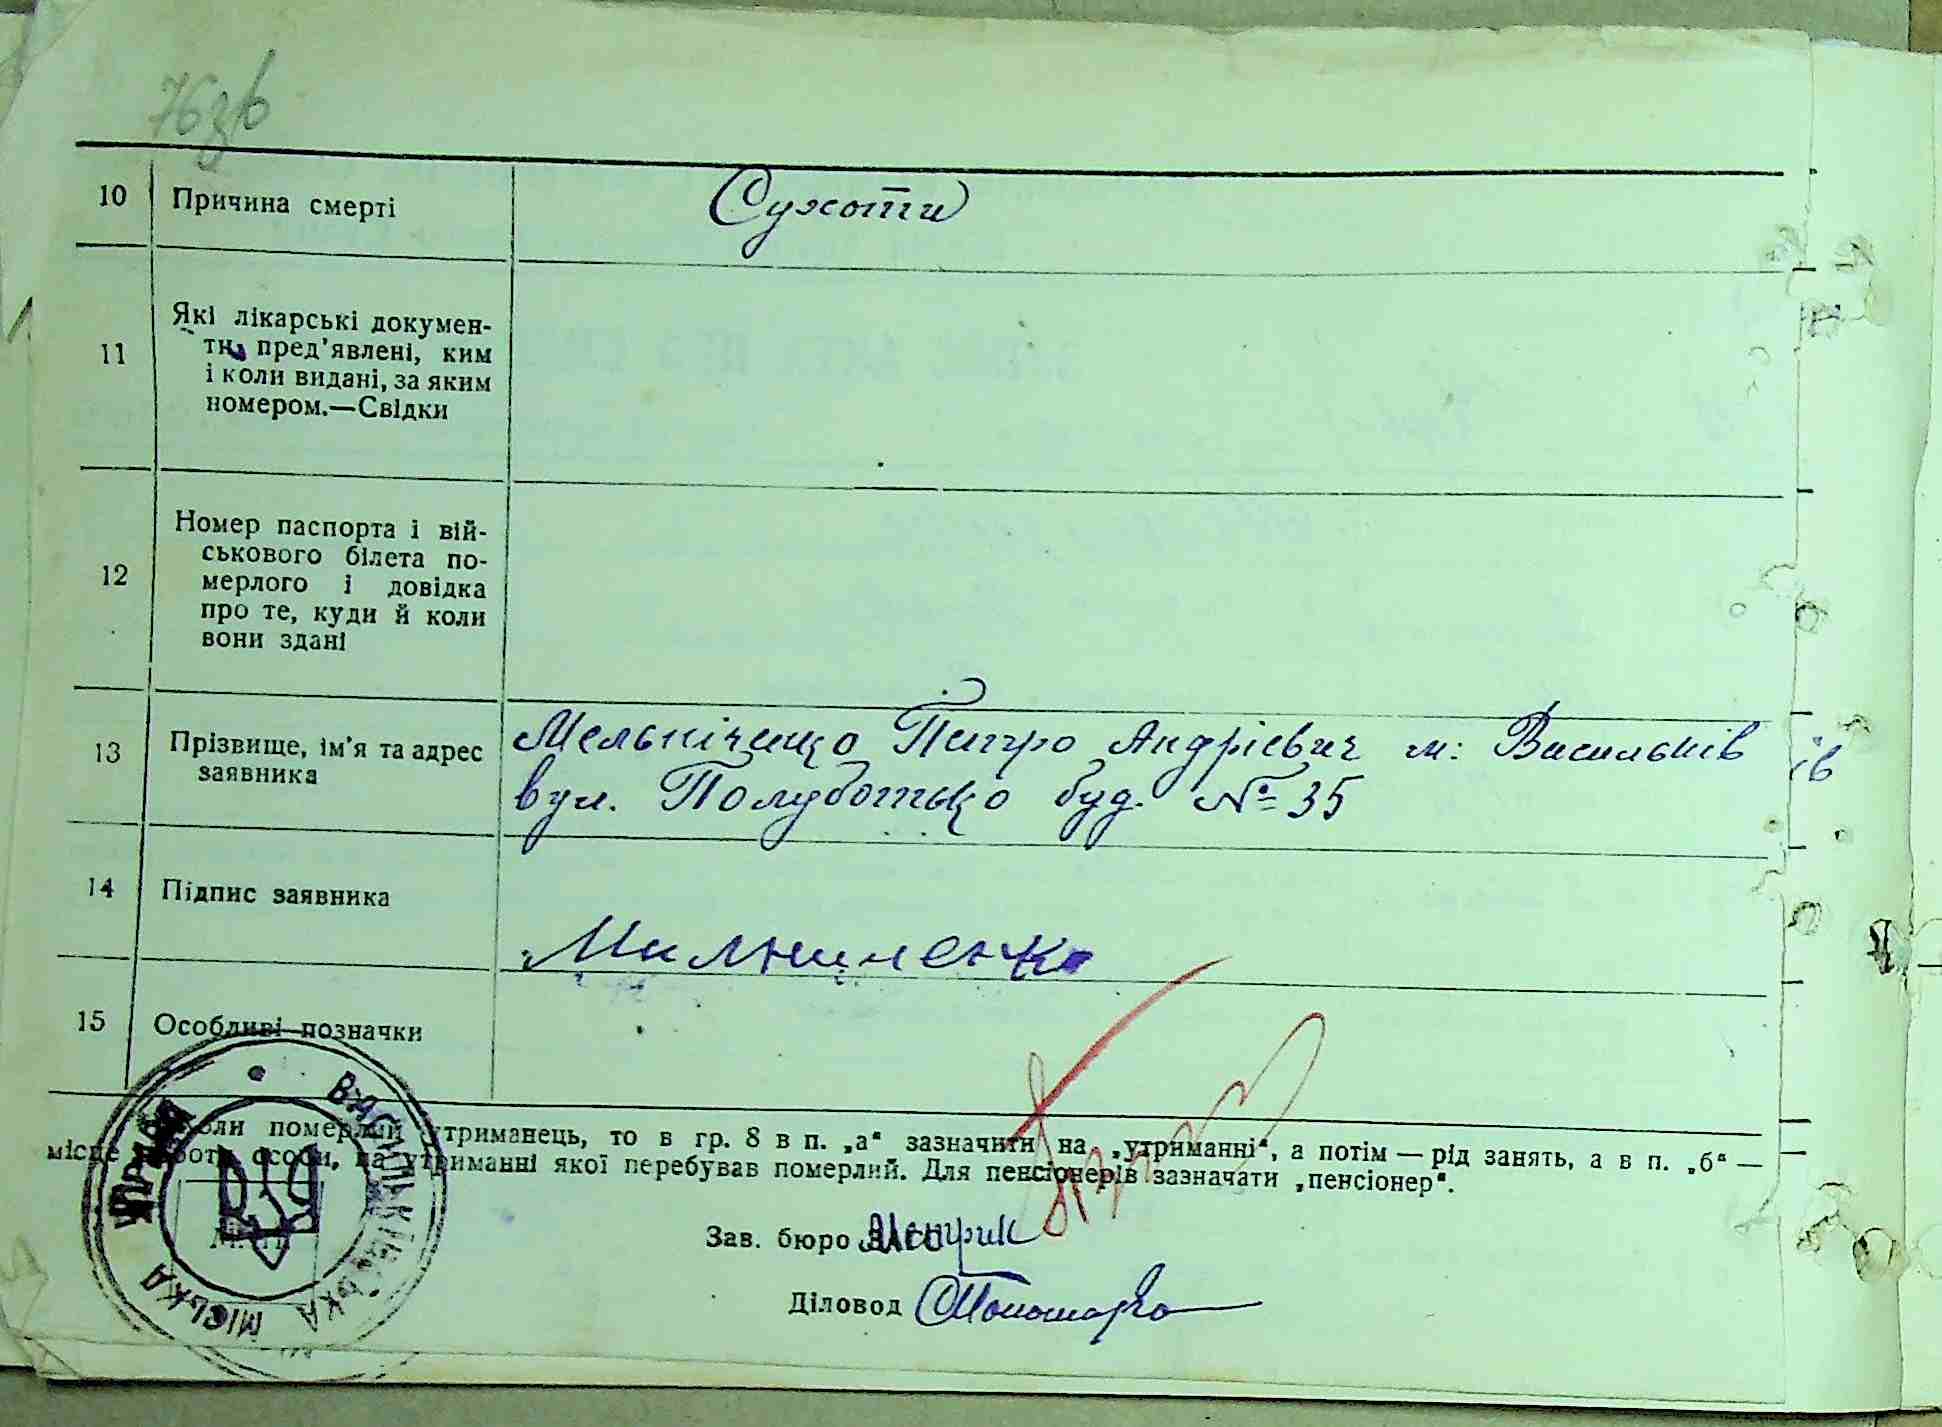 76зв
10 Причина смерті Сухоти
11 Які лікарські докумен-
ти, пред'явлені, ким
і коли видані, за яким
номером.—Свідки
12 Номер паспорта і вій-
ськового білета по-
мерлого і довідка
про те, куди й коли
вони здані
13 Прізвище, ім'я та адрес
заявника
Мельніченко Петро Андрієвич м: Васильків
вул. Полуботько буд. № 35
ів
14 Підпис заявника
Милниченко
15 Особливі позначки
Коли померлий утриманець, то в гр. 8 в п. „а“ зазначити на „утриманні“, а потім — рід занять, а в п. „б“ —
місце роботи особи, на утриманні якої перебував померлий. Для пенсіонерів зазначати „пенсіонер“.
ВАСИЛЬКІВСЬКА МІСЬКА УПРАВА
Зав. бюро
Діловод